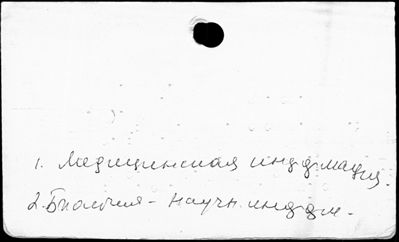 1. Медицинская информация.
2. Биология - научн. информ.